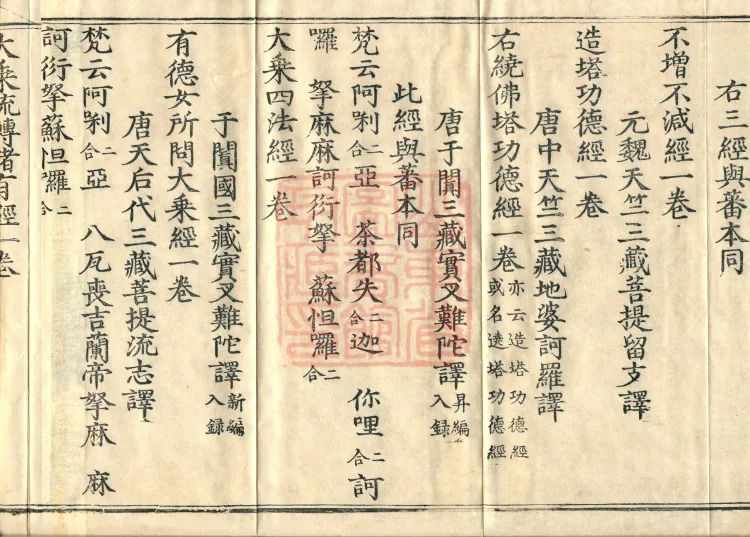 右三經與蕃本同
不增不減經一卷
元魏天竺三藏菩提留支譯
造塔功德經一卷
唐中天竺三藏地婆訶羅譯
右繞佛塔功德經一卷 亦云造塔功德經 或名遶塔功德經
唐于闐三藏實叉難陀譯 昇編入錄
此經與蕃本同
梵云阿 二合亞 荼都失二合迦 你哩二合訶
囉 拏麻麻訶衍拏 蘇怛羅二合
大乘四法經一卷
于闐國三藏實叉難陀譯 新編入錄
有德女所問大乘經一卷
唐天后代三藏菩提流志譯
梵云阿 二合亞 八瓦喪吉蘭帝拏麻 麻
訶衍拏蘇怛羅二合
大乘流轉諸有經一卷